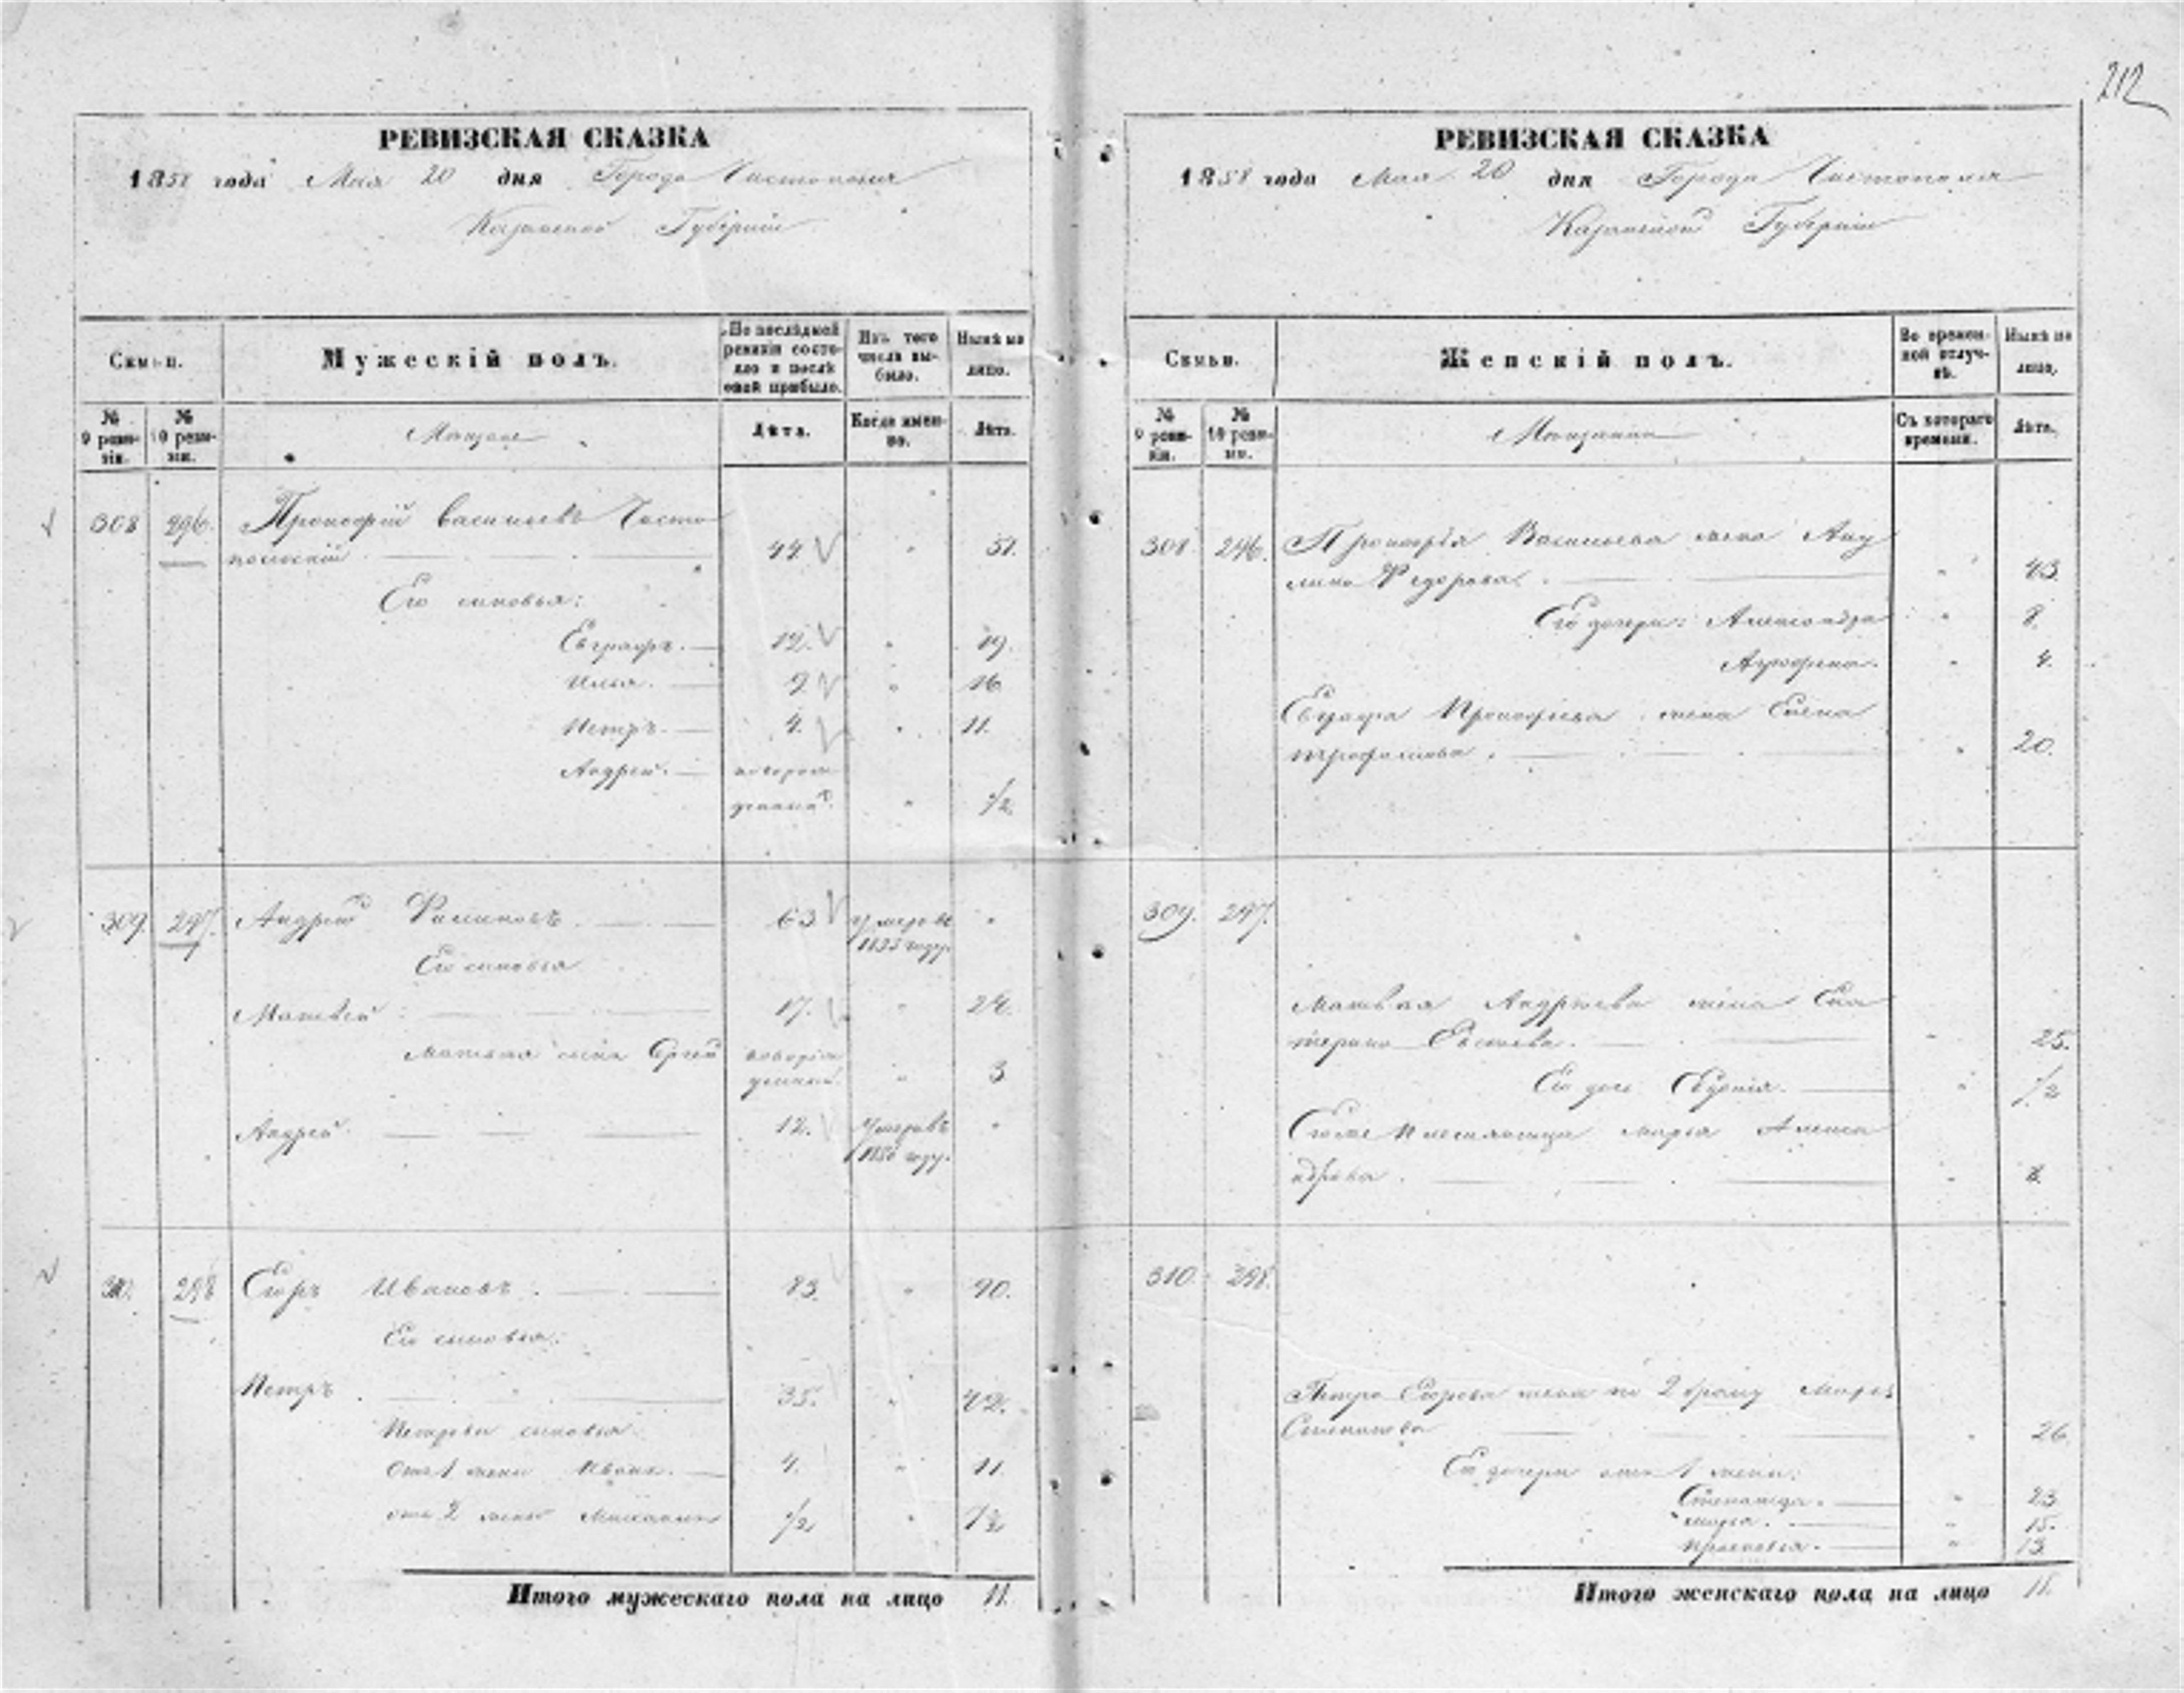 212
РЕВИЗСКАЯ СКАЗКА
1858 года Мая 20 дня Города Чистополя
Казанской Губерніи
Семьи.
Мужескій полъ.
По послѣдней ревизіи состояло и послѣ оной прибыло.
Изъ того числа выбыло.
Нынѣ на лицо.
№ 9 ревизіи.
№ 10 ревизіи.
Мещане
Лѣта.
Когда именно.
Лѣта.
308 296. Прокофій Васильевъ Чисто
польскій 44 51.
Его сыновья:
Евграфъ. 12. 19.
Илья. 9 16
Петръ. 4. 11.
Андрей. новорож
денный. 1/2
309. 297. Андрей Филиповъ 63 умеръ въ
Его сыновья 1855 году.
Матвей 17. 24.
Матвея сынъ Сергей новорож
денный. 3
Андрей 12. Умеръ въ
году.
310. 298 Егоръ Ивановъ 83. 90.
Его сыновья:
Петръ 35. 42.
Петровы сыновья
Отъ 1 жены Иванъ. 4. 11.
отъ 2 жены Михаилъ 1/2 7 1/2
Итого мужескаго пола на лицо 11.
РЕВИЗСКАЯ СКАЗКА
1858 года Мая 20 дня Города Чистополя
Казанской Губерніи
Семьи.
Женскій полъ.
Во временной отлучкѣ.
Нынѣ на лицо.
№ 9 ревизіи.
№ 10 ревизіи.
Мещанки
Съ котораго времени.
Лѣта.
308. 296. Прокофія Васильева жена Аку
лина Федорова. 43.
Его дочери: Александра 8.
Агрофена. 4.
Евграфа Прокофіева жена Елена
трофимова. 20.
309. 297.
Матвея Андреева жена Ека
терина 25.
Его дочь Евгенія. 1/2
Марья Алекса
ндрова.
310. 298.
Петра Егорова жена по 2 браку Марья
Степанова 26
Его дочери отъ 1 жены:
Степанида. 23
марья. 15.
прасковья. 13
Итого женскаго пола на лицо 11.